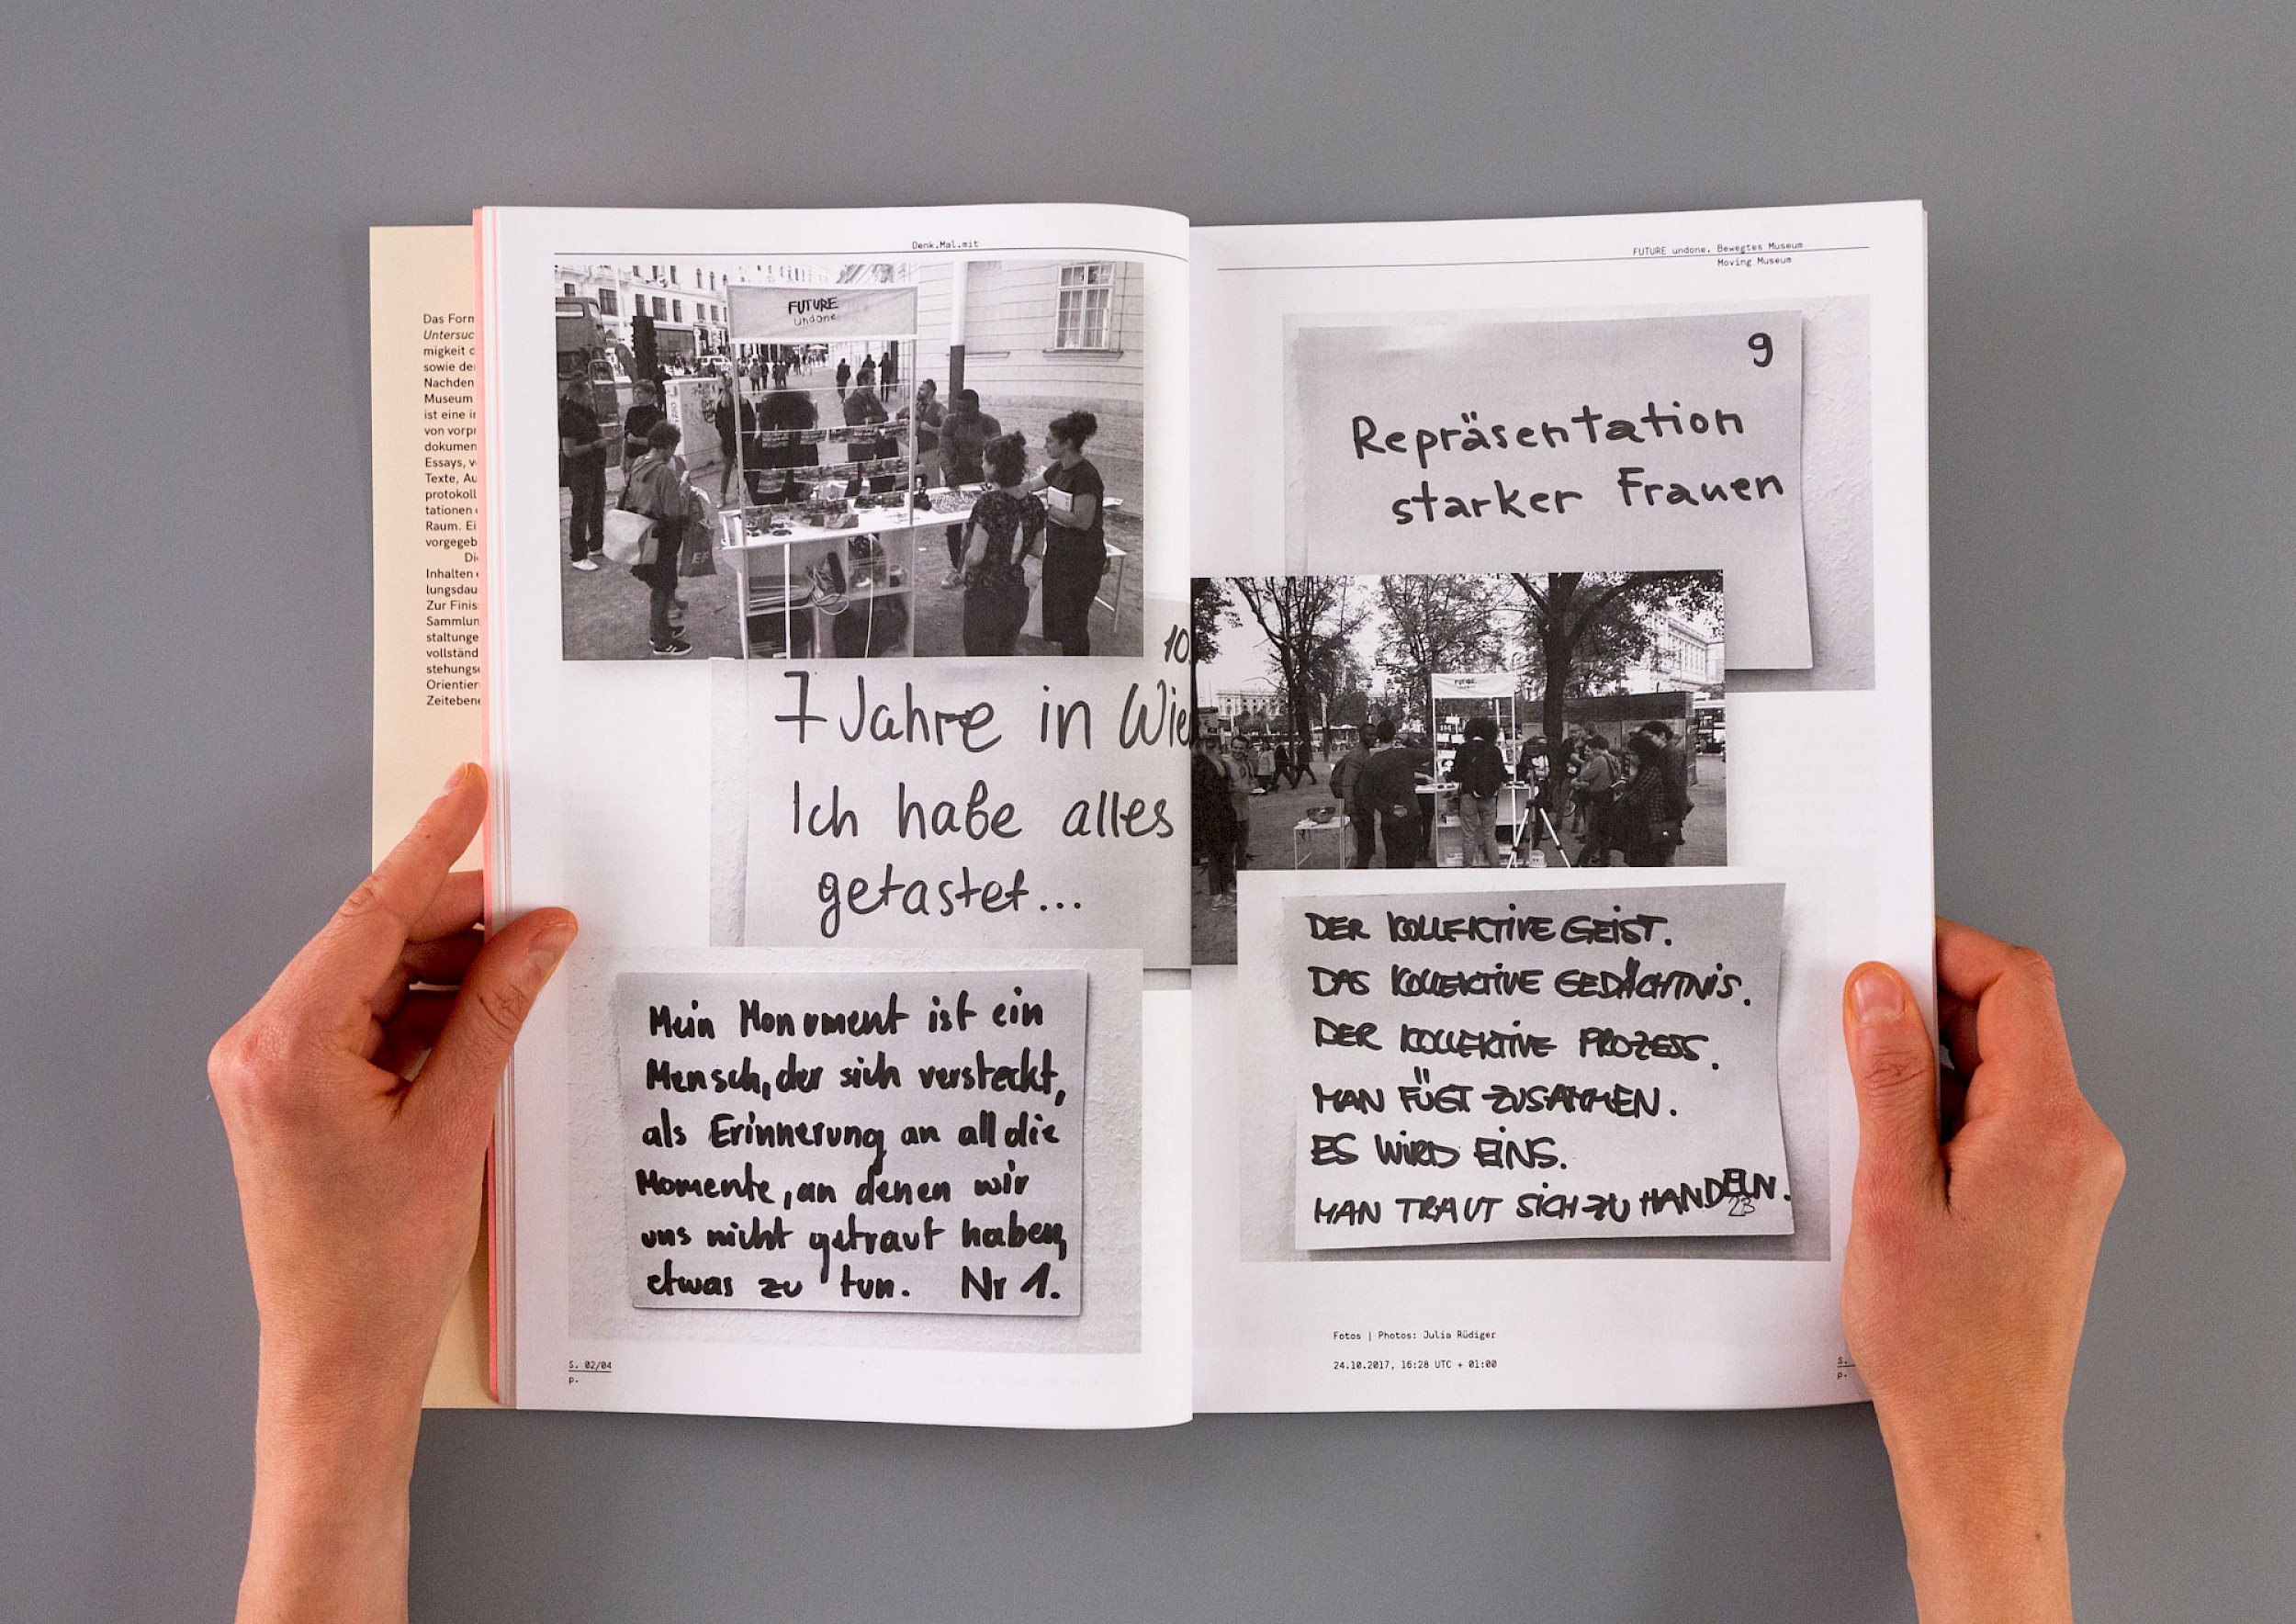 Das Form
Untersuc
migkeit d
sowie der
Nachden
Museum
ist eine in
von vorpr
dokumen
Essays, v
Texte, Au
protokoll
tationen
Raum. Ei
vorgegeb
Di
Inhalten
lungsdau
Zur Finis
Sammlun
staltunge
vollständ
stehungs
Orientier
Zeitebene
Denk.Mal.mit
FUTURE
undone.
10
7 Jahre in Wie
Ich habe alles
getastet...
Mein Monument ist ein
Mensch, der sich versteckt,
als Erinnerung an all die
Momente, an denen wir
uns nicht getraut haben,
etwas zu tun. Nr 1.
S. 02/04
p.
FUTURE undone. Bewegtes Museum
Moving Museum
9
Repräsentation
starker Frauen
FUTURE
DER KOLLEKTIVE GEIST.
DAS KOLLEKTIVE GEDÄCHTNIS.
DER KOLLEKTIVE PROZESS.
MAN FÜGT ZUSAMMEN.
ES WIRD EINS.
MAN TRAUT SICH ZU HANDELN.
23
Fotos | Photos: Julia Rüdiger
24.10.2017, 16:28 UTC + 01:00
S.
p.